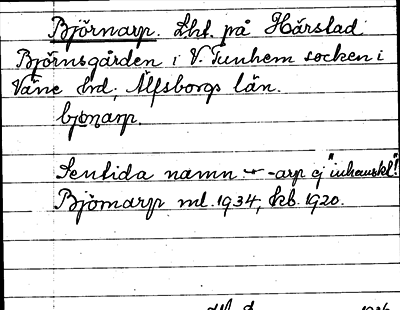 Björnarp. Lht. på Hårstad
Björnsgården i V. Tunhem socken i
Väne hd, Älfsborgs län.
bjo̱narp.
Sentida namn - -arp ej "inhauskl"!
Björnarp ml. 1934, kb. 1920.